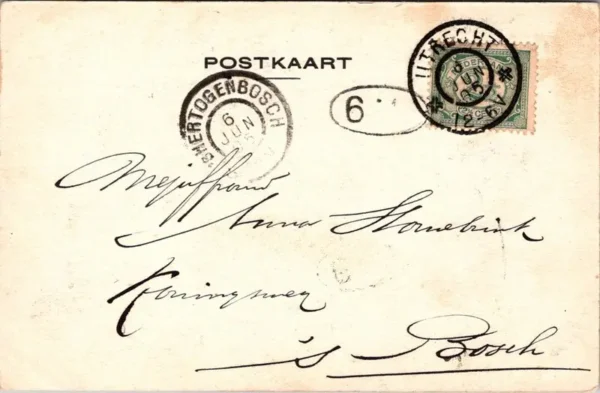 POSTKAART
UTRECHT
6
JUN
05
12-6V
'SHERTOGENBOSCH
6
JUN
6
Mejuffrouw
Anna
Koningsweg
's Bosch